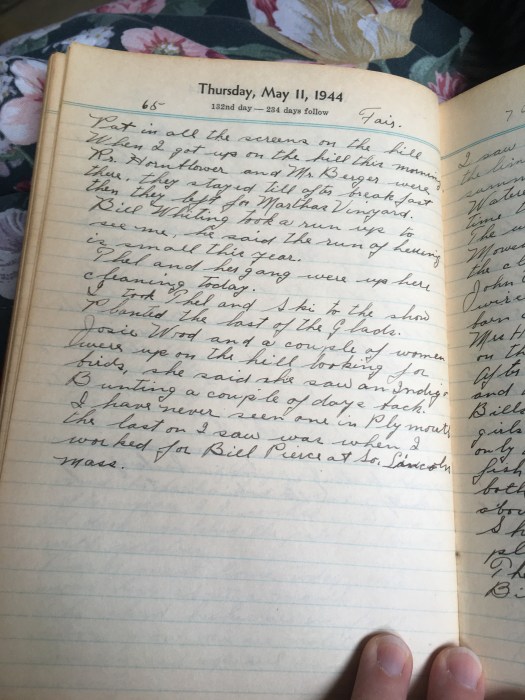 Thursday, May 11, 1944
65
132nd day — 234 days follow
Fair.
Put in all the screens on the hill
When I got up on the hill this morning
Mr. Hornblower and Mr. Berger were
there, they stayed till after breakfast
then they left for Marthas Vinyard.
Bill Whiting took a run up to
see me, he said the run of herring
is small this year.
Thel and her gang were up here
cleaning today.
I took Thel and Ski to the show
Planted the last of the Glads.
Josie Wood and a couple of women
were up on the hill looking for
birds, she said she saw an Indigo
Bunting a couple of days back.
I have never seen one in Plymouth
the last on I saw was when I
worked for Bill Pierce at So. Lincoln
Mass.
7
I saw
the
Water
time
The
Mowe
the
John
wire
barn
Mrs H
on th
After
and
Bill
girls
only
fish
both
abou
Sh
pl
Th
Bi